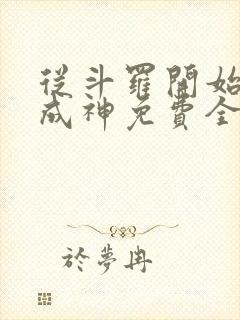 從斗羅開始
成神免費全
於夢冉